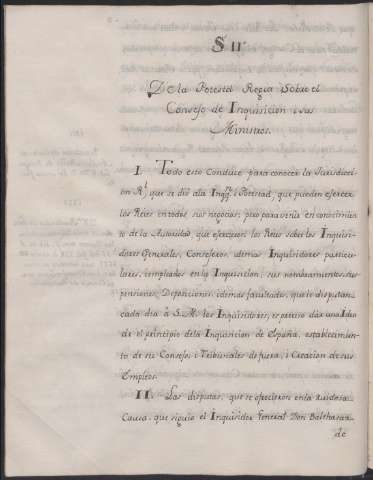 § II
De la Potestad Regia Sobre el
Consejo de Inquisicion i sus
Ministros.
I. Todo esto conduce para conocer la Jurisdiccion
Rl que se dió ala Inqqn i Potestad, que pueden exercer
los Reies en todos sus negocios; pero para venir en conocimien
to de la Autoridad, que exercieron los Reies sobre los Inquisi
dores Generales, Consejeros, idemas Inquisidores particu
lares, empleados en la Inquisicion, sus nombramientos, sus
pensiones, Deposiciones, idemas facultades, que le disputan
cada dia à S. M. los Inquisidores, es preciso dár una Idea
de el principio dela Inquisicion de España, establecimien
to de su Consejo i Tribunales de fuera, i Creacion de sus
Empleos.
II. Las disputas, que se ofrecieron en la ruidosa
Causa, que siguio el Inquisidor General Don Balthasar
de